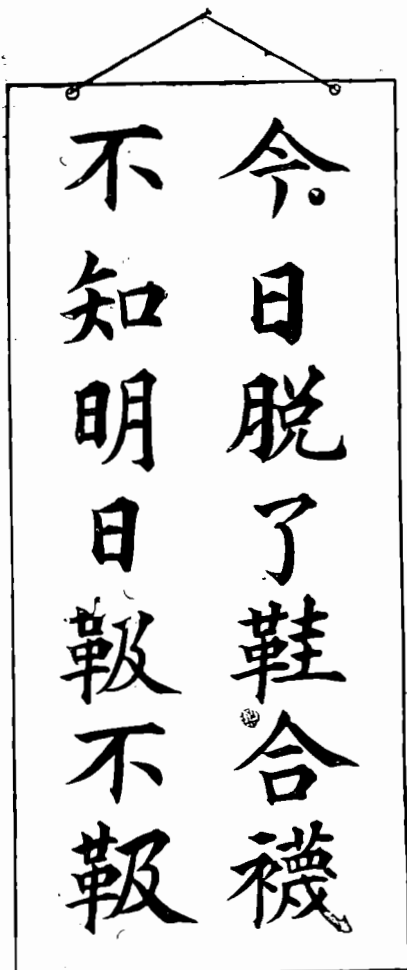 今日脱了鞋合襪
不知明日靸不靸